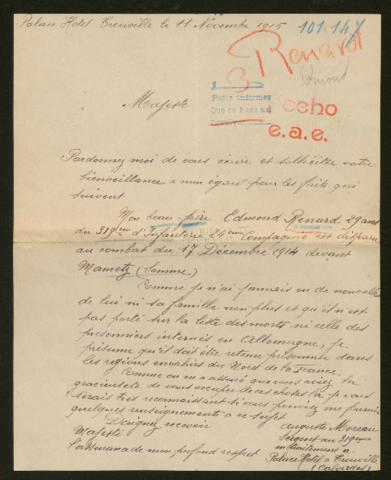 Palace Hotel Trouville le 11 Novembre 1915
101.147
Renard
Edmond
3
Hecho
e.a.e.
Majesté
Pardonnez moi de vous écrire et solliciter votre
bienveillance a mon égard pour les faits qui
suivent
Mon beau frère Edmond Renard 29 ans
du 319eme d'Infanterie 24eme Compagnie est disparu
au combat du 17 Décembre 1914 devant
Mametz (Somme)
Comme je n'ai jamais eu de nouvelle
de lui ni sa famille non plus et qu'il n'est
pas porté sur la liste des morts ni celle des
prisonniers internés en Allemagne, je
présume qu'il doit être retenu prisonnier dans
les régions envahies du Nord de la France
Comme on m'a assuré que vous aviez la
gracieuseté de vous occuper de ces choses là je vous
serais très reconnaissant si vous pouviez me fournir
quelques renseignements a ce sujet
Daignez recevoir
Majesté
l'assurance de mon profond respect
Auguste Moreau
Sergent au 319eme
en traitement a
Palace Hotel a Trouville
(Calvados)